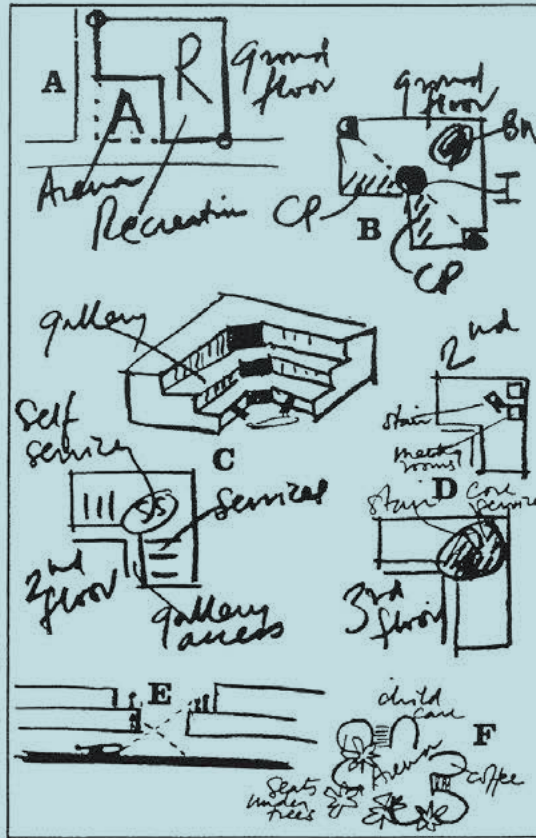 A
R
A
ground
floor
Arena
Recreation
ground
floor
BM
I
CP
B
CP
gallery
C
2nd
stair
meeting
rooms
D
Self
service
SS
services
2nd
floor
gallery
access
stair
core
services
3rd
floor
E
child
care
F
Arena
coffee
Seats
under
trees